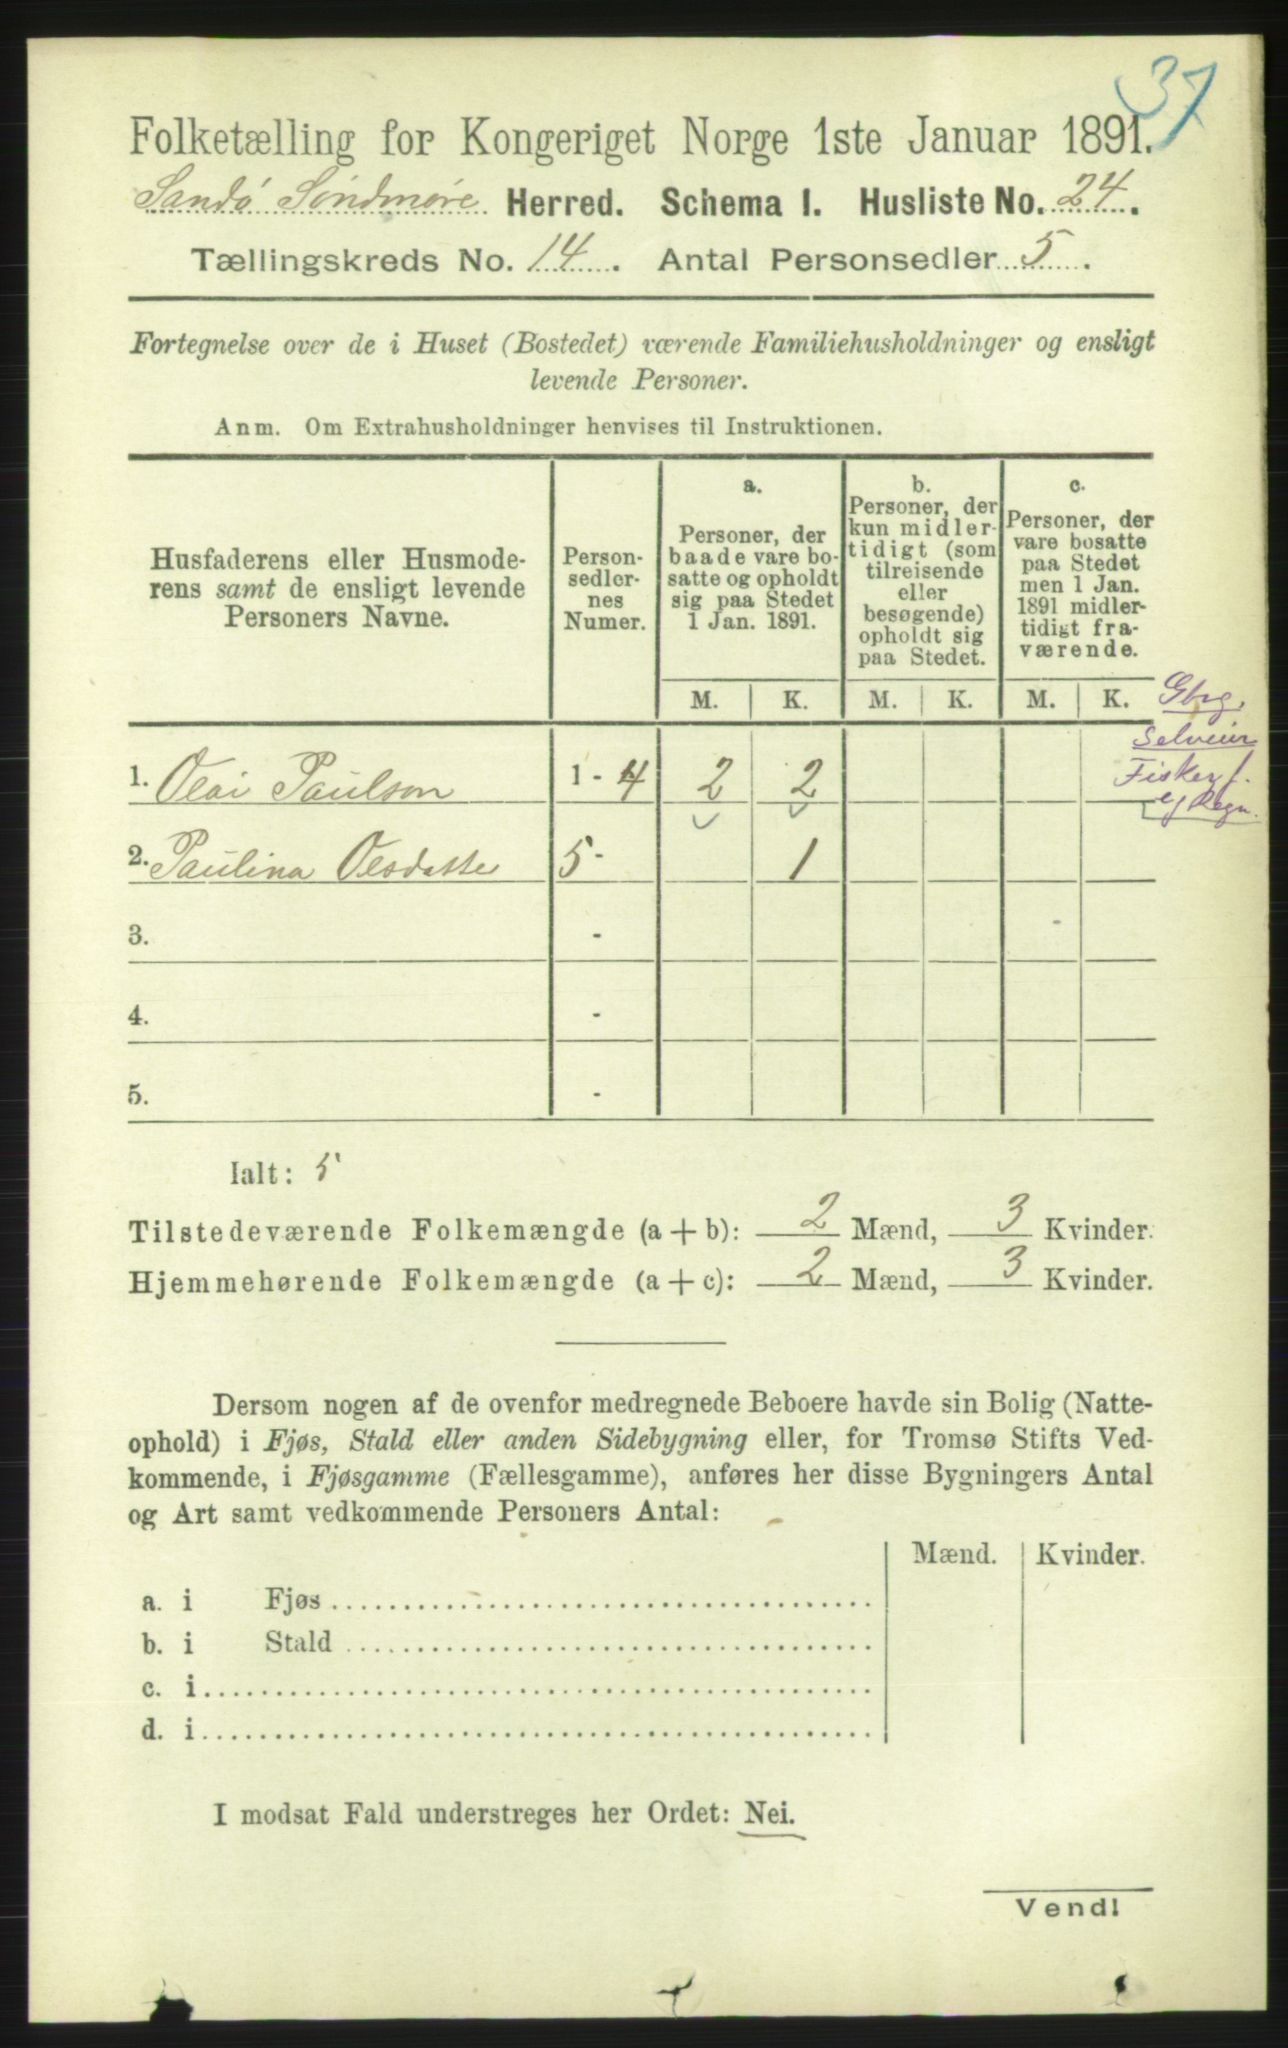 37
Folketælling for Kongeriget Norge 1ste Januar 1891.
Sandø Søndmøre Herred. Schema I. Husliste No. 24.
Tællingskreds No. 14. Antal Personsedler 5.
Fortegnelse over de i Huset (Bostedet) værende Familiehusholdninger og ensligt
levende Personer.
Anm. Om Extrahusholdninger henvises til Instruktionen.
Husfaderens eller Husmode-
rens samt de ensligt levende
Personers Navne.
Person-
sedler-
nes
Numer.
a.
Personer, der
baade vare bo-
satte og opholdt
sig paa Stedet
1 Jan. 1891.
b.
Personer, der
kun midler-
tidigt (som
tilreisende
eller
besøgende)
opholdt sig
paa Stedet.
c.
Personer, der
vare bosatte
paa Stedet
men 1 Jan.
1891 midler-
tidigt fra-
værende.
M. K. M. K. M. K.
Gbrg.
Selveier
Fisker f.
eg Regn.
1. Olai Paulson 1 - 4 2 2
2. Paulina Olsdatte 5 - 1
3. -
4. -
5. -
Ialt: 5
Tilstedeværende Folkemængde (a + b): 2 Mænd, 3 Kvinder.
Hjemmehørende Folkemængde (a + c): 2 Mænd, 3 Kvinder.
Dersom nogen af de ovenfor medregnede Beboere havde sin Bolig (Natte-
ophold) i Fjøs, Stald eller anden Sidebygning eller, for Tromsø Stifts Ved-
kommende, i Fjøsgamme (Fællesgamme), anføres her disse Bygningers Antal
og Art samt vedkommende Personers Antal:
Mænd. Kvinder.
a. i Fjøs
b. i Stald
c. i
d. i
I modsat Fald understreges her Ordet: Nei.
Vend!